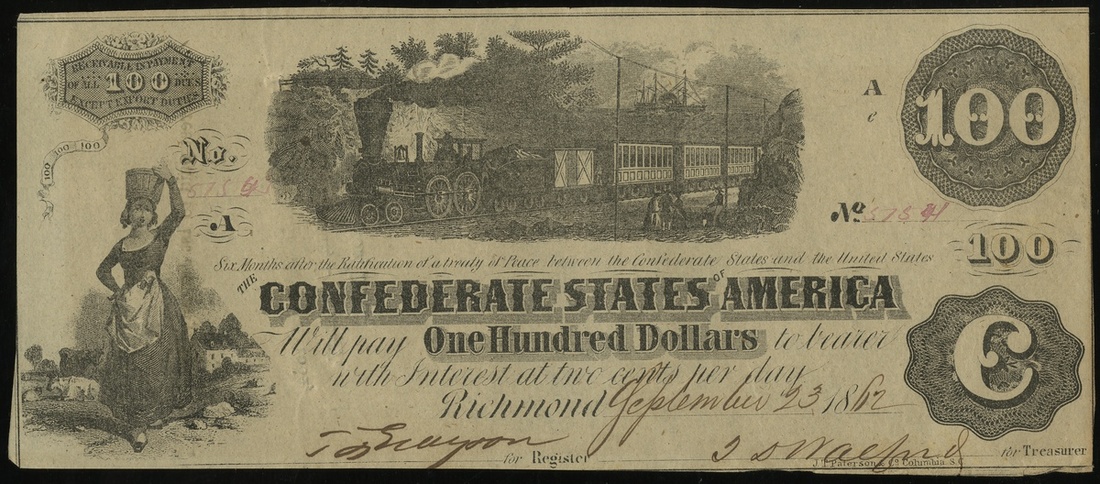 RECEIVABLE IN PAYMENT
OF ALL 100 DUES
EXCEPT EXPORT DUTIES
100 100 100
No.
A
A
e
100
No
100
Six Months after the Ratification of a treaty of Peace between the Confederate States and the United States
THE CONFEDERATE STATES OF AMERICA
Will pay One Hundred Dollars to bearer
with Interest at two cents per day
Richmond September 23 1862
for Register
for Treasurer
J. T. Paterson & Co Columbia S.C
C